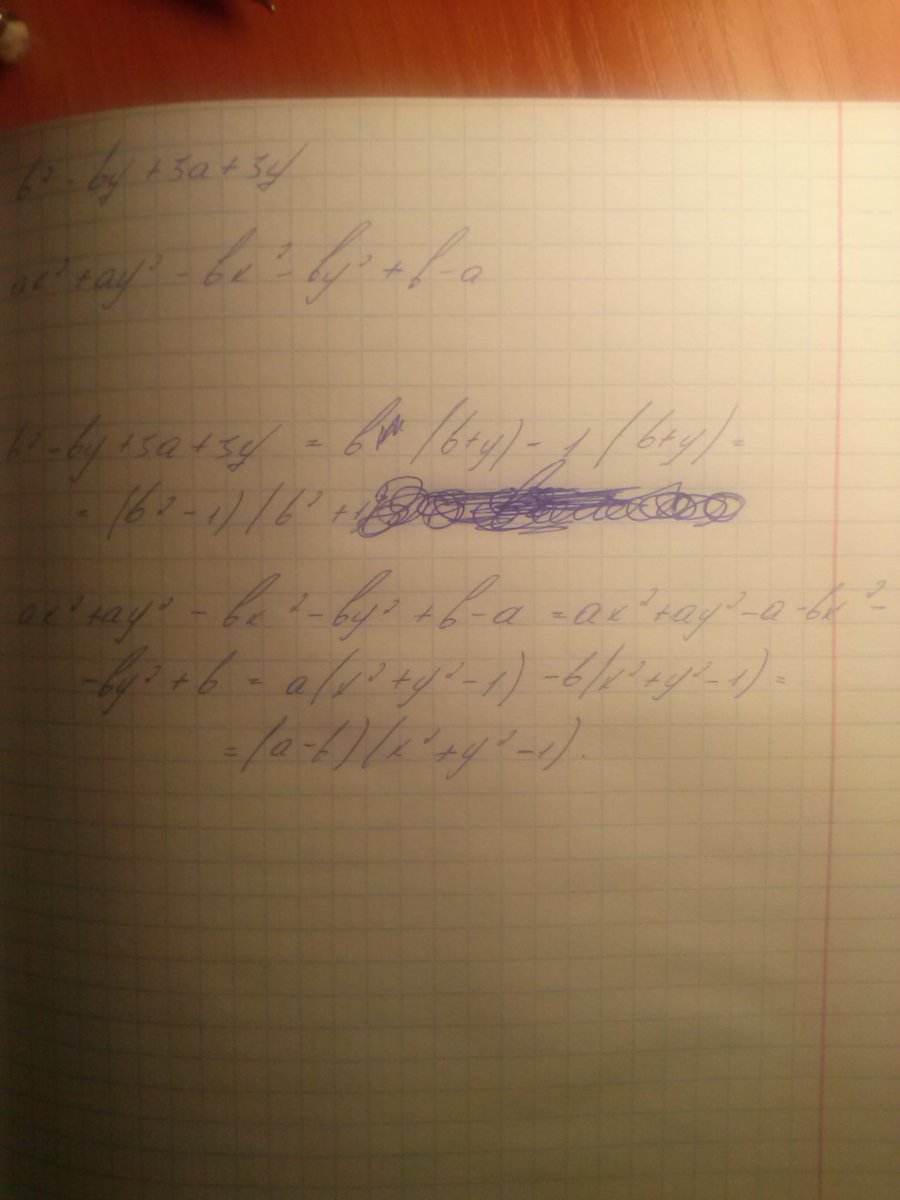 b² - by + 3a + 3y
ax² + ay² - bx² - by² + b - a
b² - by + 3a + 3y = b (b+y) - 1 (b+y) =
= (b² - 1) (b² + 1)
ax² + ay² - bx² - by² + b - a = ax² + ay² - a - bx² -
- by² + b = a(x² + y² - 1) - b(x² + y² - 1) =
= (a - b) (x² + y² - 1).